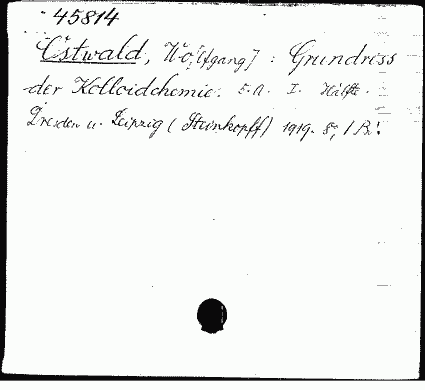 45814
Ostwald, Wo[lfgang] : Grundriss
der Kolloidchemie. 5. A. I. Hälfte.
Dresden u. Leipzig (Steinkopff) 1919. 8°, 1 B.